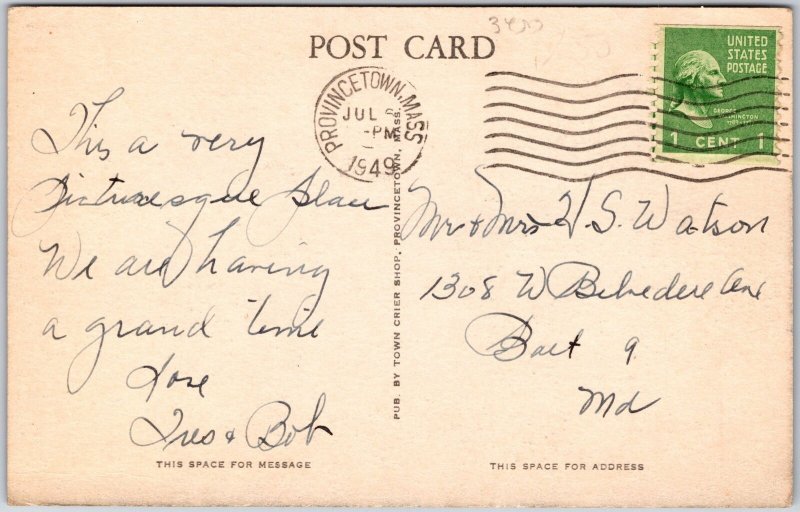 POST CARD
PROVINCETOWN, MASS.
JUL
PM
1949
UNITED
STATES
POSTAGE
GEORGE
WASHINGTON
1 CENT 1
This a very
Picturesque place
We are having
a grand time
Love
& Bob
Mr & Mrs H. S. Watson
1308 W Belvedere Ave
Balt 9
Md
PUB. BY TOWN CRIER SHOP, PROVINCETOWN, MASS.
THIS SPACE FOR MESSAGE
THIS SPACE FOR ADDRESS